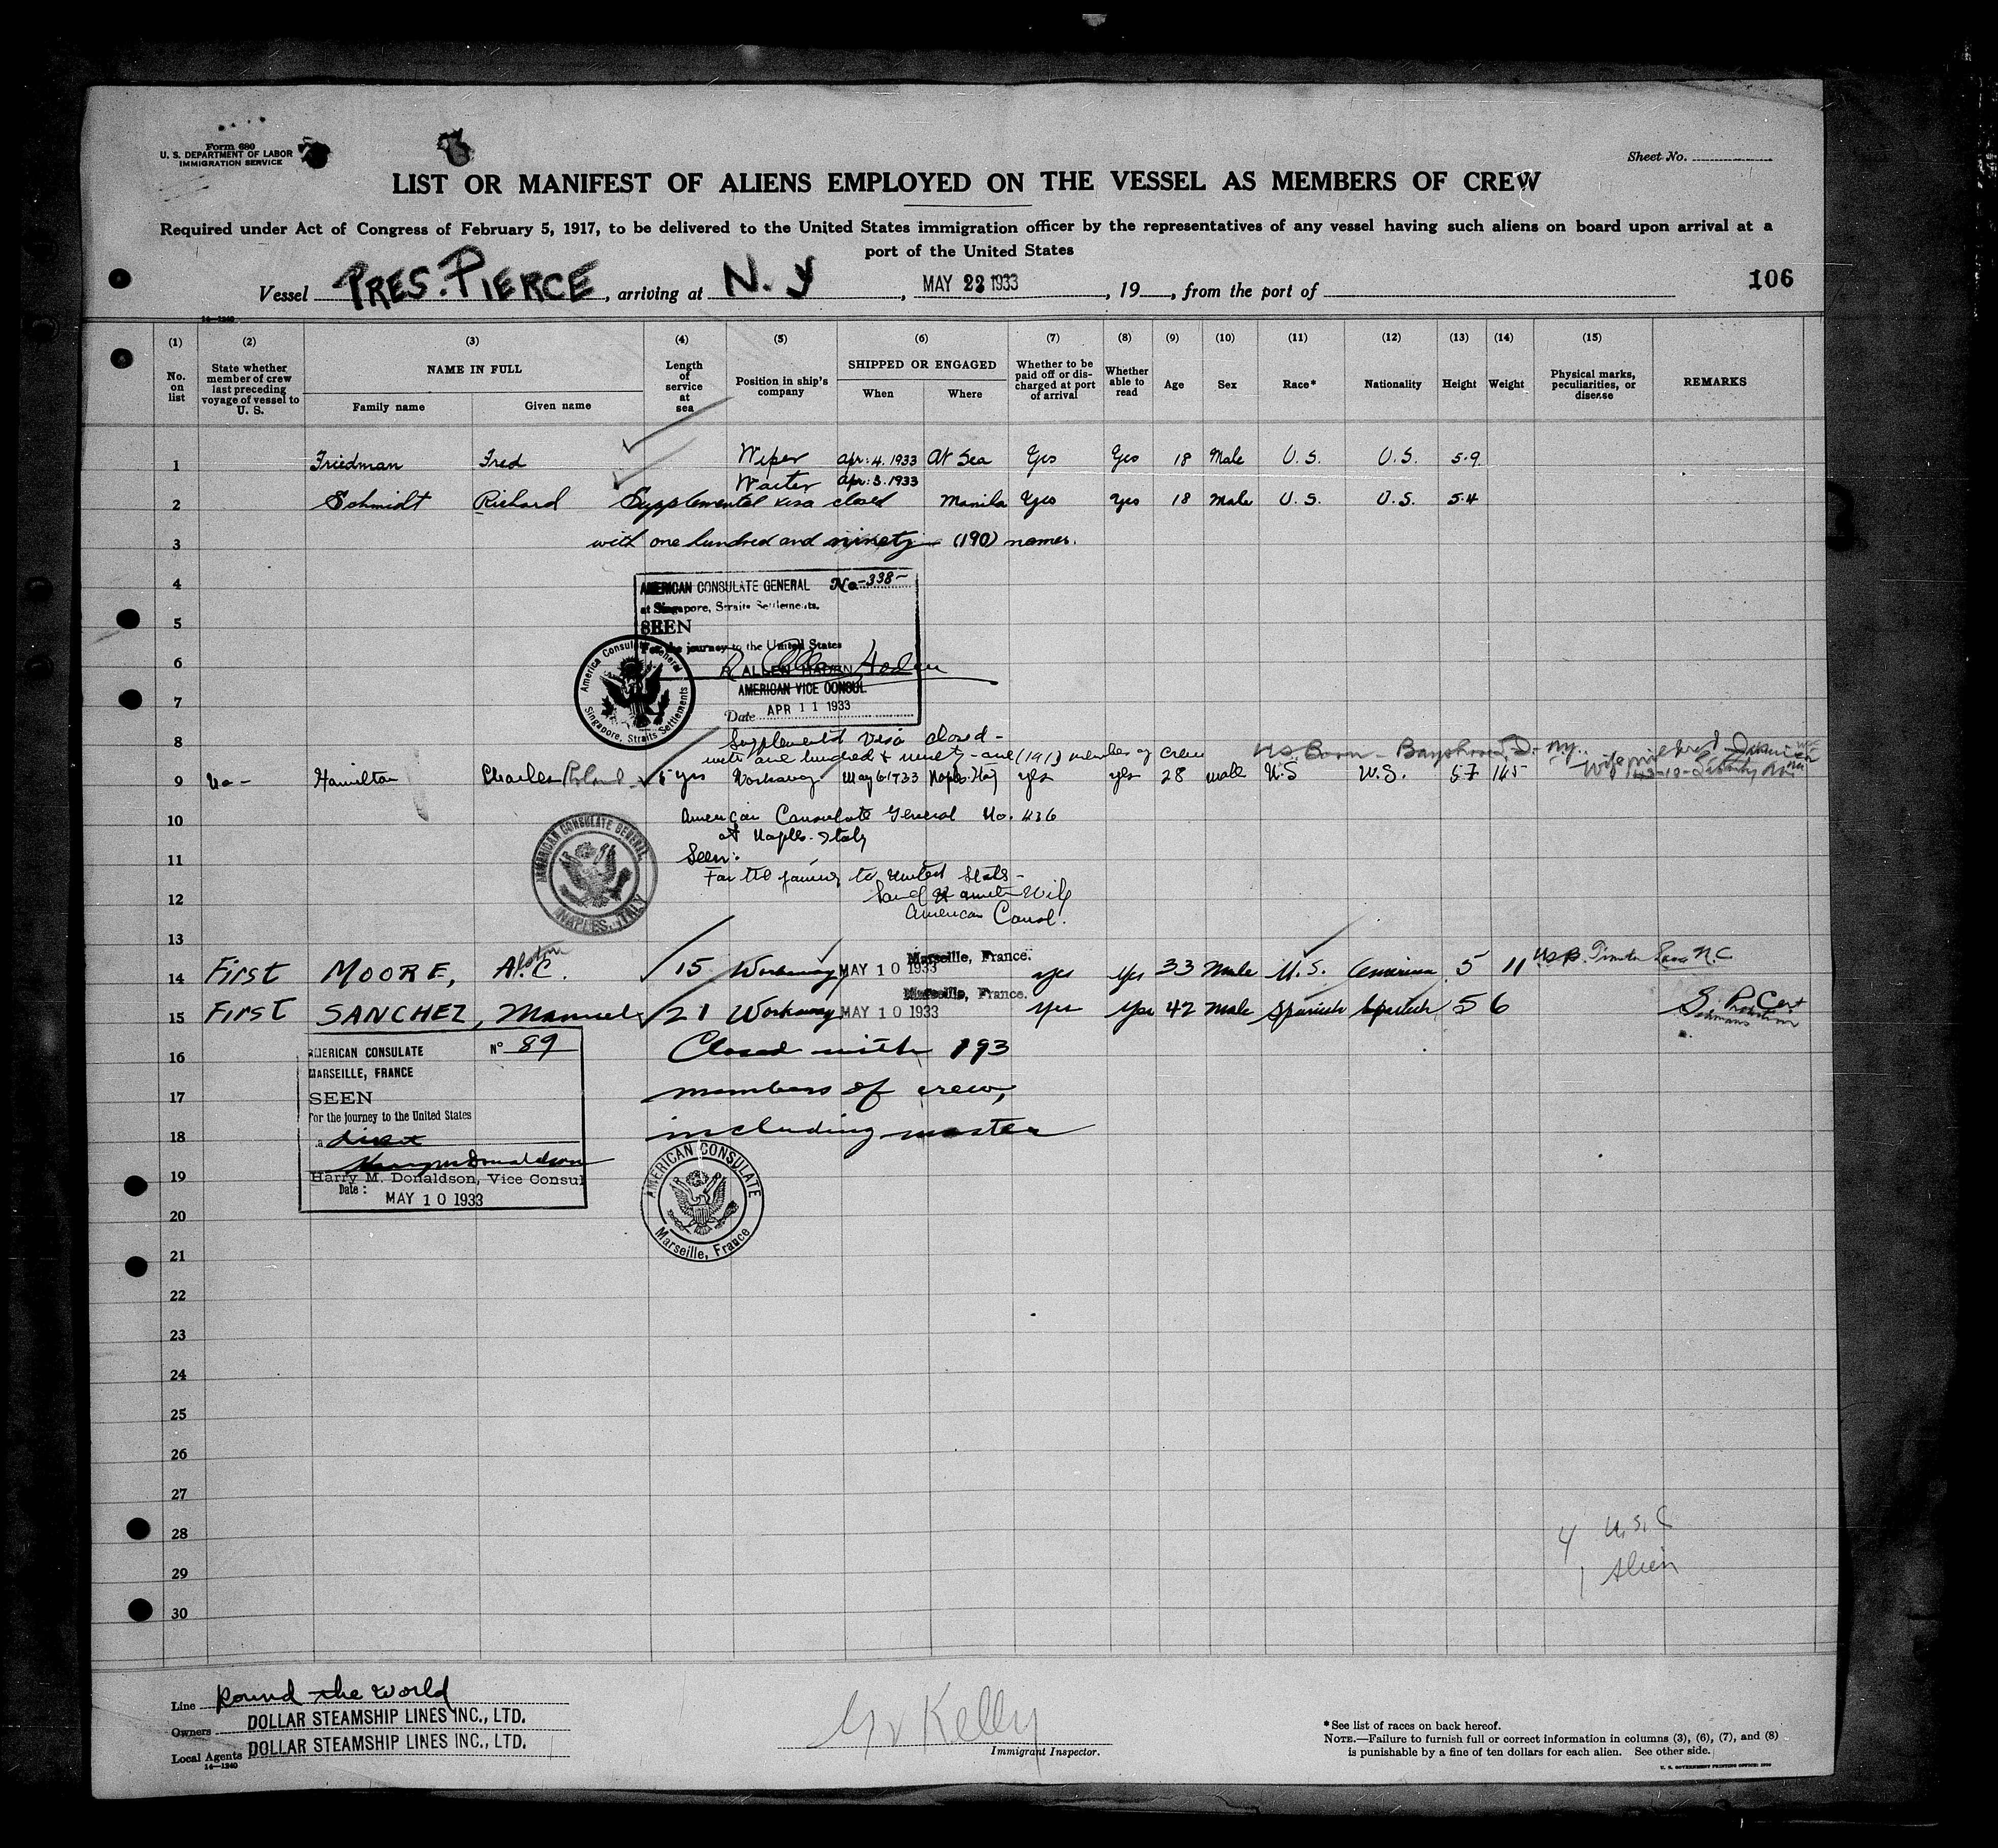 Form 680
U. S. DEPARTMENT OF LABOR
IMMIGRATION SERVICE
Sheet No.
LIST OR MANIFEST OF ALIENS EMPLOYED ON THE VESSEL AS MEMBERS OF CREW
Required under Act of Congress of February 5, 1917, to be delivered to the United States immigration officer by the representatives of any vessel having such aliens on board upon arrival at a
port of the United States
Vessel PRES. PIERCE, arriving at N. Y, MAY 22 1933, 19, from the port of
106
14—1240
(1) (2) (3) (4) (5) (6) (7) (8) (9) (10) (11) (12) (13) (14) (15)
No. on list
State whether member of crew last preceding voyage of vessel to U. S.
NAME IN FULL
Family name Given name
Length of service at sea
Position in ship's company
SHIPPED OR ENGAGED
When Where
Whether to be paid off or discharged at port of arrival
Whether able to read
Age Sex Race* Nationality Height Weight
Physical marks, peculiarities, or disease
REMARKS
1 Friedman Fred Wiper Apr: 4. 1933 At Sea Yes Yes 18 Male U. S. U. S. 5-9
Waiter Apr: 3. 1933
2 Schmidt Richard Supplemental visa closed Manila Yes Yes 18 Male U. S. U. S. 5-4
3 with one hundred and ninety (190) names.
4 AMERICAN CONSULATE GENERAL No. 338
at Singapore, Straits Settlements.
5 SEEN
For the journey to the United States
6 R Allen Haden
R ALLEN HADEN
AMERICAN VICE CONSUL
7 Date APR 11 1933
American Consulate General Singapore, Straits Settlements
8 Supplemental visa closed -
with one hundred & ninety-one (191) member of crew
U.S. Born - Bayshore L.I. - N.Y.
Wife
9 no - Hamilton Charles Roland 5 yrs Workaway May 6-1933 Naples-Italy yes yes 28 male U.S U.S. 5-7 145
10 American Consulate General No. 436
at Naples-Italy
11 Seen:
For the journey to United States -
12 American Consul.
AMERICAN CONSULATE GENERAL NAPLES, ITALY
13
Marseille, France.
14 First MOORE, A. C. 15 Workaway MAY 10 1933 yes yes 33 Male U. S. American 5 11 USB. N.C.
Marseille, France.
15 First SANCHEZ, Manuel 21 Workaway MAY 10 1933 yes yes 42 Male Spanish Spanish 5 6
16 AMERICAN CONSULATE N° 89 Closed with 193
MARSEILLE, FRANCE
17 SEEN members of crew,
For the journey to the United States
18 direx including master
Harry M Donaldson
19 Harry M. Donaldson, Vice Consul
Date: MAY 10 1933
AMERICAN CONSULATE Marseille, France
20
21
22
23
24
25
26
27
28 4 U. S. C
29 1 Alien
30
Line Round the World
Owners DOLLAR STEAMSHIP LINES INC., LTD.
Local Agents DOLLAR STEAMSHIP LINES INC., LTD.
14—1240
Kelly
Immigrant Inspector.
*See list of races on back hereof.
NOTE.—Failure to furnish full or correct information in columns (3), (6), (7), and (8)
is punishable by a fine of ten dollars for each alien. See other side.